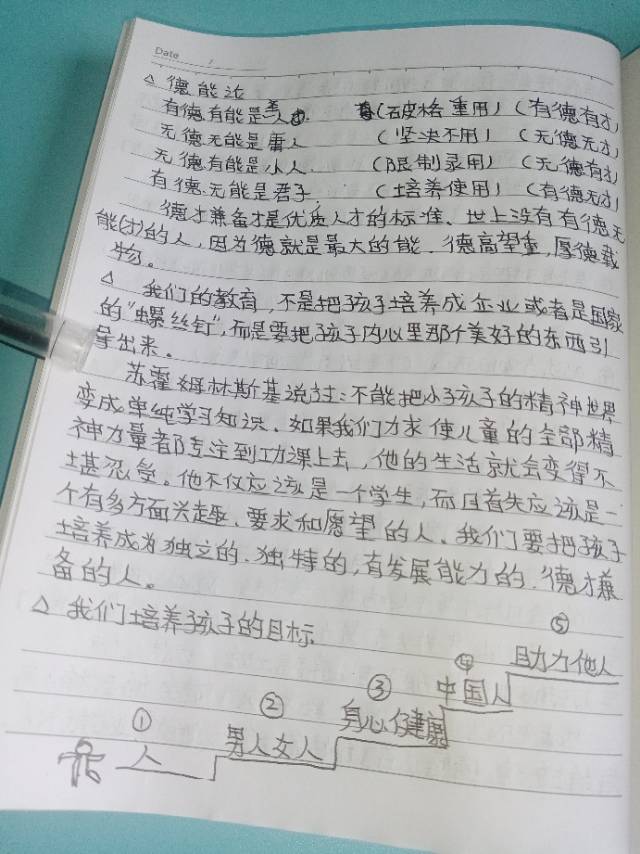 Date
△ 德能论
有德有能是善人才. (破格重用) (有德有才)
无德无能是庸人 (坚决不用) (无德无才)
无德有能是小人. (限制录用) (无德有才)
有德无能是君子 (培养使用) (有德无才)
德才兼备才是优质人才的标准、世上没有有德无
能(才)的人,因为德就是最大的能.德高望重,厚德载
物。
△ 我们的教育,不是把孩子培养成企业或者是国家
的"螺丝钉",而是要把孩子内心里那个美好的东西引
导出来。
苏霍姆林斯基说过:不能把小孩子的精神世界
变成单纯学习知识.如果我们力求使儿童的全部精
神力量都专注到功课上去,他的生活就会变得不
堪忍受。他不仅应该是一个学生,而且首先应该是一
个有多方面兴趣、要求和愿望的人.我们要把孩子
培养成为独立的.独特的,有发展能力的.德才兼
备的人。
△ 我们培养孩子的目标
⑤ 助力他人
④ 中国人
③ 身心健康
② 男人女人
① 人